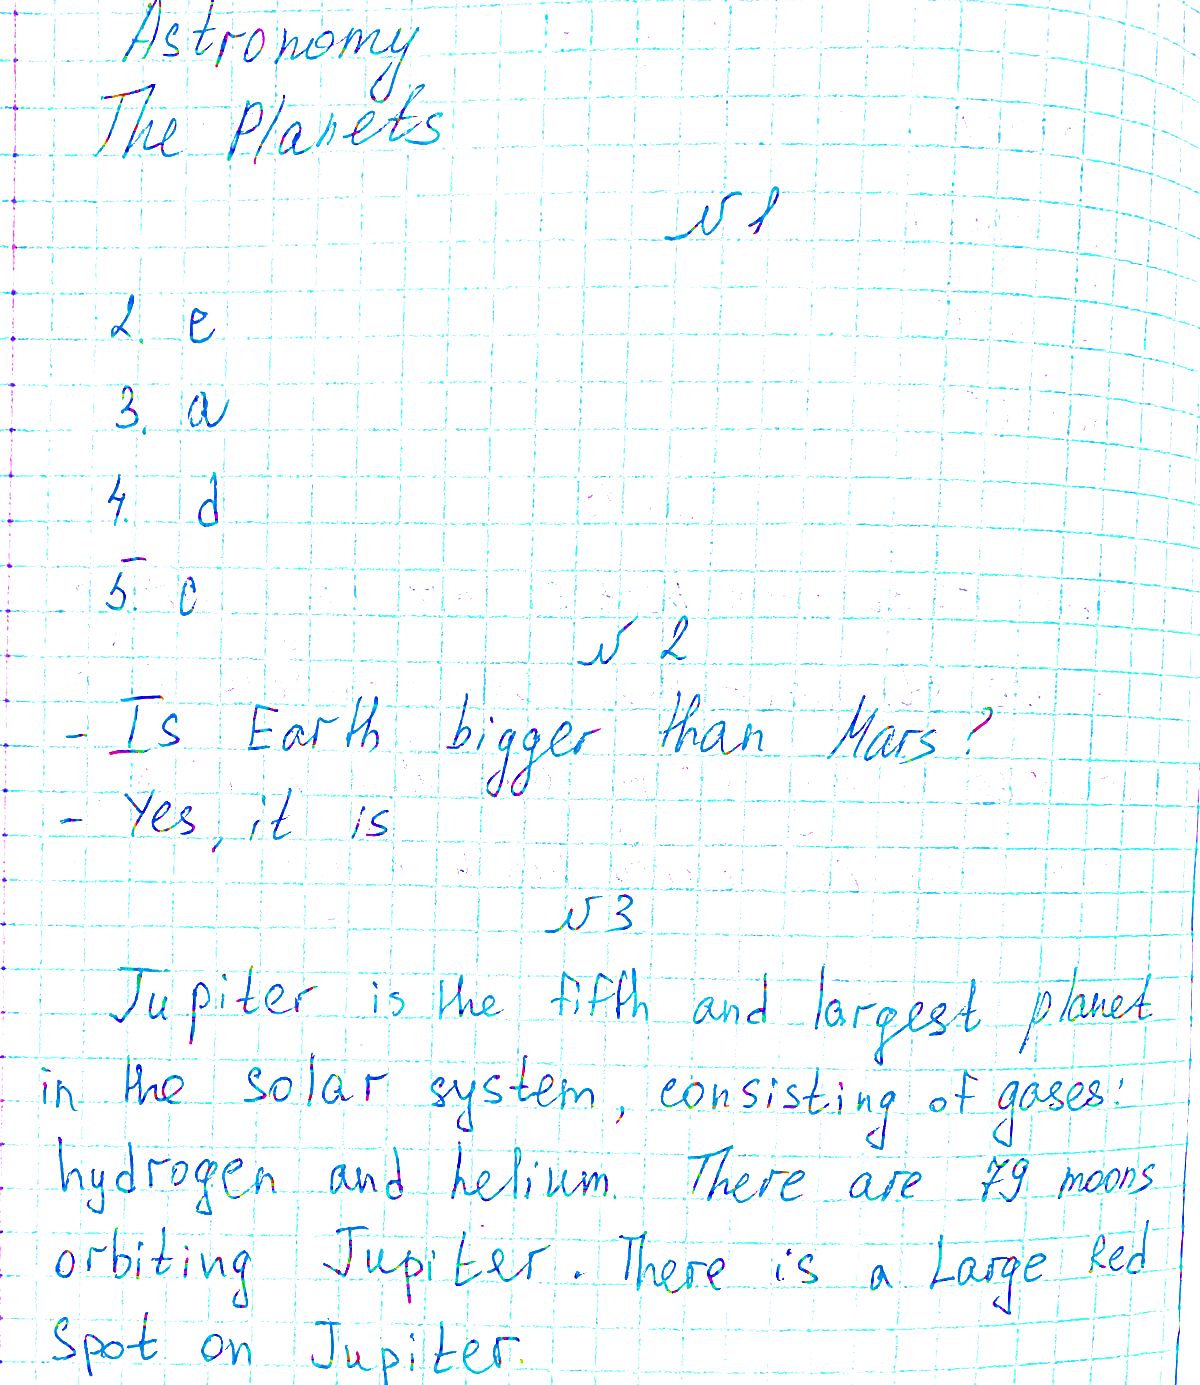 Astronomy
The Planets
N 1
2. e
3. a
4. d
5. c
N 2
- Is Earth bigger than Mars?
- Yes, it is
N 3
Jupiter is the fifth and largest planet
in the solar system, consisting of gases:
hydrogen and helium. There are 79 moons
orbiting Jupiter. There is a Large Red
Spot on Jupiter.